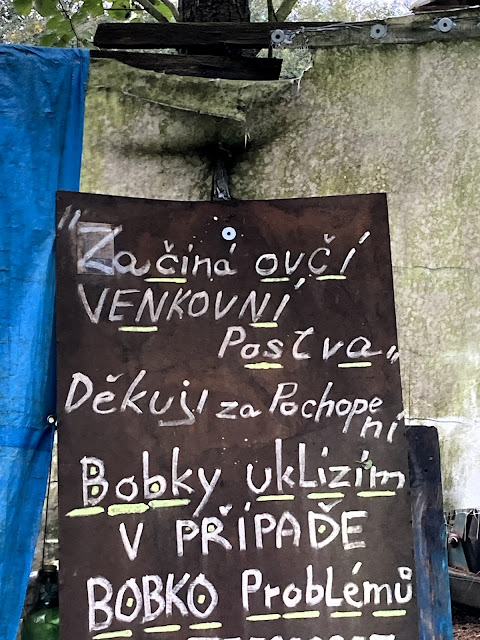 "Začíná ovčí
VENKOVNÍ
Postva"
Děkuji za Pochope
ní
Bobky uklízím
V PŘÍPAĎE
BOBKO Problémů